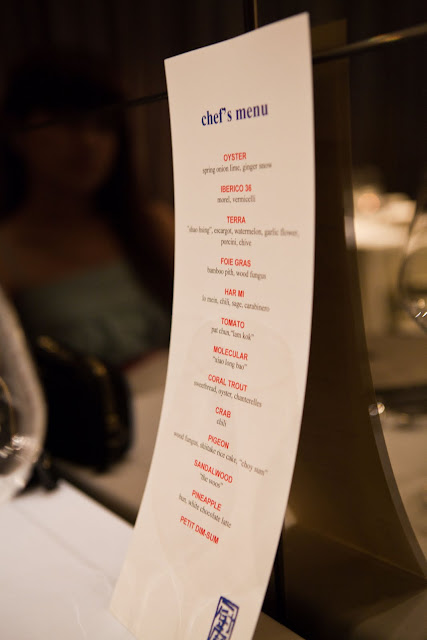 chef's menu
OYSTER
spring onion lime, ginger snow
IBERICO 36
morel, vermicelli
TERRA
"xiao hsing", escargot, watermelon, garlic flower,
porcini, chive
FOIE GRAS
bamboo pith, wood fungus
HAR MI
lo mein, chili, sage, carabinero
TOMATO
pat chun, "lam kok"
MOLECULAR
"xiao long bao"
CORAL TROUT
sweetbread, oyster, chanterelles
CRAB
chili
PIGEON
wood fungus, shiitake rice cake, "choy sum"
SANDALWOOD
"the woos"
PINEAPPLE
bun, white chocolate latte
PETIT DIM-SUM